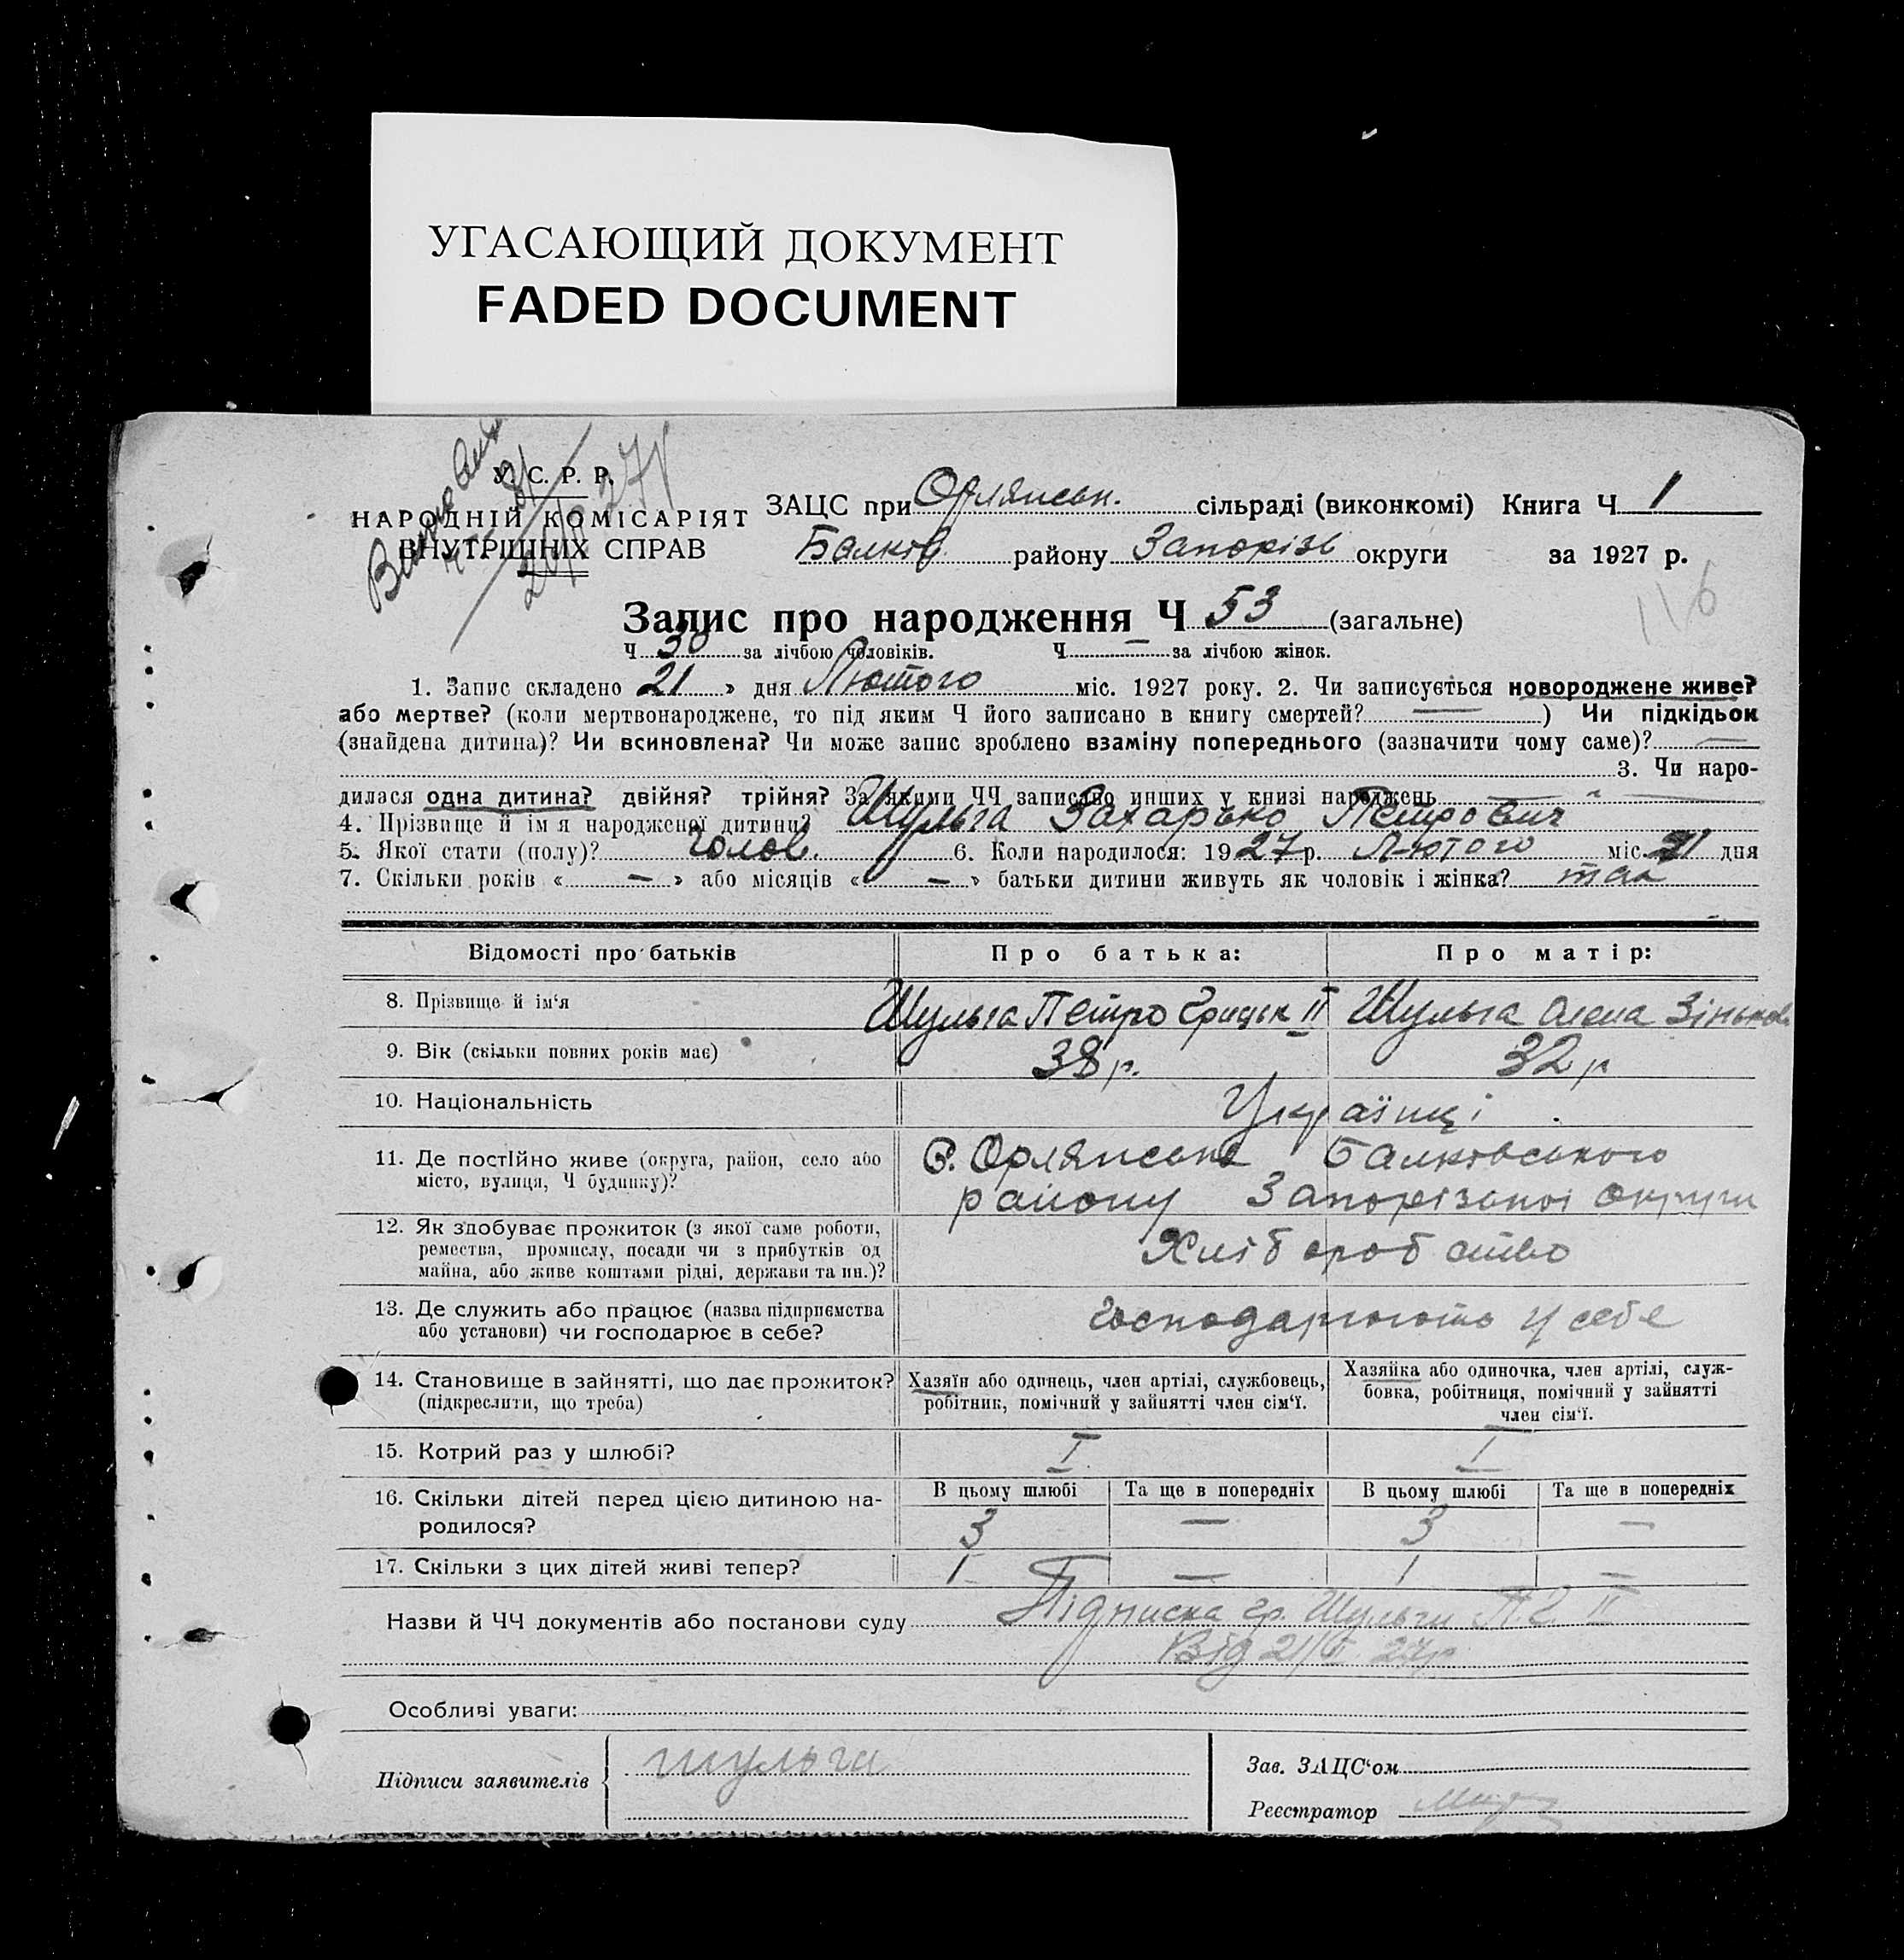 УГАСАЮЩИЙ ДОКУМЕНТ
FADED DOCUMENT
У. С. Р. Р.
НАРОДНІЙ КОМІСАРІЯТ
ВНУТРІШНІХ СПРАВ
ЗАЦС при Орлянськ. сільраді (виконкомі) Книга Ч 1
Балків. району Запоріз округи за 1927 р.
116
Запис про народження Ч 53 (загальне)
Ч 30 за лічбою чоловіків. Ч — за лічбою жінок.
1. Запис складено 21 » дня Лютого міс. 1927 року. 2. Чи записується новороджене живе?
або мертве? (коли мертвонароджене, то під яким Ч його записано в книгу смертей? — ) Чи підкідьок
(знайдена дитина)? Чи всиновлена? Чи може запис зроблено взаміну попереднього (зазначити чому саме)? —
3. Чи наро-
дилася одна дитина? двійня? трійня? За якими ЧЧ записано инших у книзі народжень — " —
4. Прізвище й ім я народженої дитини? Шульга Захарько Петрович
5. Якої стати (полу)? чолов. 6. Коли народилося: 1927 р. Лютого міс. 21 дня
7. Скільки років « — » або місяців « — » батьки дитини живуть як чоловік і жінка? так
Відомості про батьків Про батька: Про матір:
8. Прізвище й ім‘я Шульга Петро Грицьк II Шульга Олена Зіньков.
9. Вік (скільки повних років має) 38 р. 32 р
10. Національність Українці
11. Де постійно живе (округа, район, село або
місто, вулиця, Ч будинку)?
с. Орлянське Балковського
району Запорізької округи
12. Як здобуває прожиток (з якої саме роботи,
ремества, промислу, посади чи з прибутків од
майна, або живе коштами рідні, держави та ин.)?
Хліборобство
13. Де служить або працює (назва підприємства
або установи) чи господарює в себе?
Господарюють у себе
14. Становище в зайнятті, що дає прожиток?
(підкреслити, що треба)
Хазяїн або одинець, член артілі, службовець,
робітник, помічний у зайнятті член сім‘ї.
Хазяйка або одиночка, член артілі, служ-
бовка, робітниця, помічний у зайнятті
член сім‘ї.
15. Котрий раз у шлюбі? I I
16. Скільки дітей перед цією дитиною на-
родилося?
В цьому шлюбі Та ще в попередніх В цьому шлюбі Та ще в попередніх
3 — 3 —
17. Скільки з цих дітей живі тепер? 1 — 1 —
Назви й ЧЧ документів або постанови суду Підписка гр. Шульги П. Г. II
Від 21/II 27р
Особливі уваги:
Підписи заявителів шульги
Зав. ЗАЦС‘ом
Реєстратор